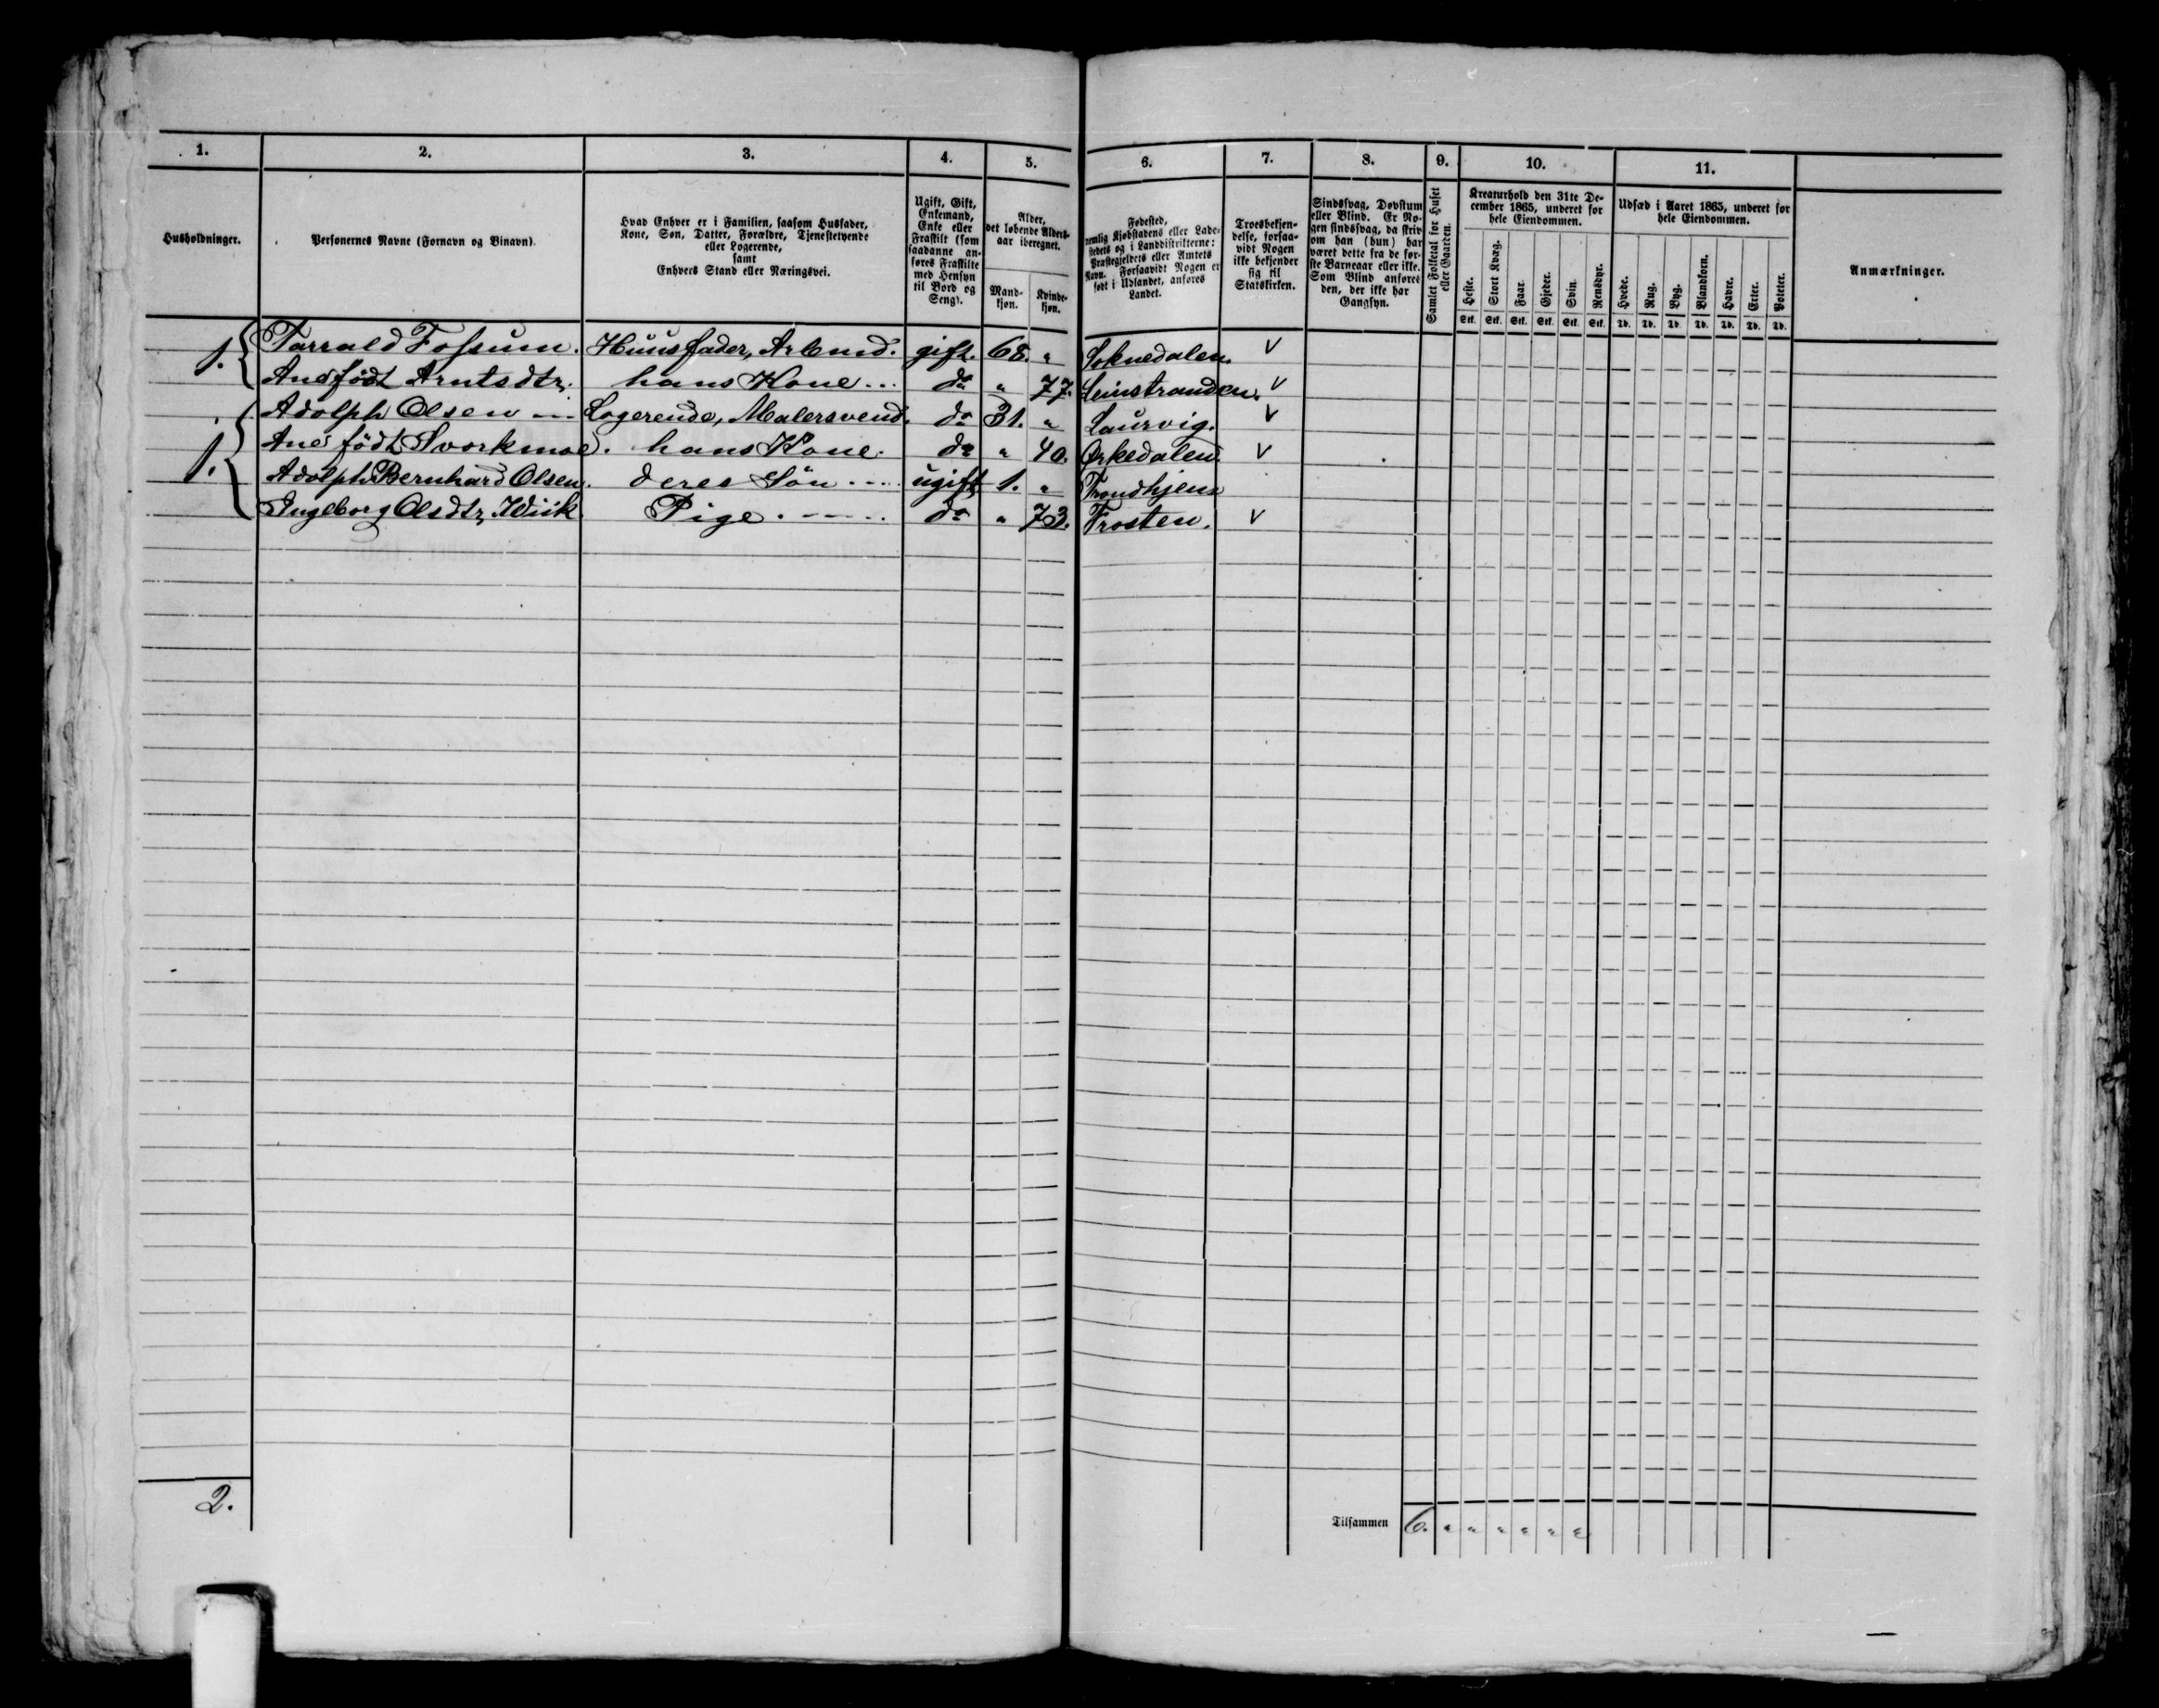 1. 2. 3. 4. 5. 6. 7. 8. 9. 10. 11.
Husholdninger.
Personernes Navne (Fornavn og Binavn).
Hvad Enhver er i Familien, saasom Husfader,
Kone, Søn, Datter, Forældre, Tjenestetyende
eller Logerende,
samt
Enhvers Stand eller Næringsvei.
Ugift, Gift,
Enkemand,
Enke eller
Fraskilt (som
saadanne an-
føres Fraskilte
med Hensyn
til Bord og
Seng).
Alder,
det løbende Alders-
aar iberegnet.
Mand-
kjøn.
Kvinde-
kjøn.
Fødested,
nemlig Kjøbstadens eller Lade-
stedets og i Landdistrikterne:
Præstegjeldets eller Amtets
Navn. Forsaavidt Nogen er
født i Udlandet, anføres
Landet.
Troesbekjen-
delse, forsaa-
vidt Nogen
ikke bekjender
sig til
Statskirken.
Sindssvag, Døvstum
eller Blind. Er No-
gen sindssvag, da skriv
om han (hun) har
været dette fra de før-
ste Barneaar eller ikke.
Som Blind anføres
den, der ikke har
Gangsyn.
Samlet Folketal for Huset
eller Gaarden.
Kreaturhold den 31te De-
cember 1865, underet for
hele Eiendommen.
Heste. Stort Kvæg. Faar. Gjeder. Svin. Rensdyr.
Stk. Stk. Stk. Stk. Stk. Stk.
Udsæd i Aaret 1865, underet for
hele Eiendommen.
Hvede. Rug. Byg. Blandkorn. Havre. Erter. Poteter.
Td. Td. Td. Td. Td. Td. Td.
Anmærkninger.
1. { Tarrald Fossum. Huusfader, Arbmd. gift. 68. " Soknedalen. V
Ane født Arntsdtr. hans Kone... do " 77. Leinstranden. V
1. { Adolph Olsen --- Logerende, Malersvend. do 31. " Laurvig. V
Ane født Svorkmoe. hans Kone. do " 40. Ørkedalen. V
Adolph Bernhard Olsen. deres Søn.... ugift 1. " Trondhjem
Ingeborg Olsdtr. Wiik. Pige.---.. do " 73. Frosten. V
2.
Tilsammen 6. " " " " " "